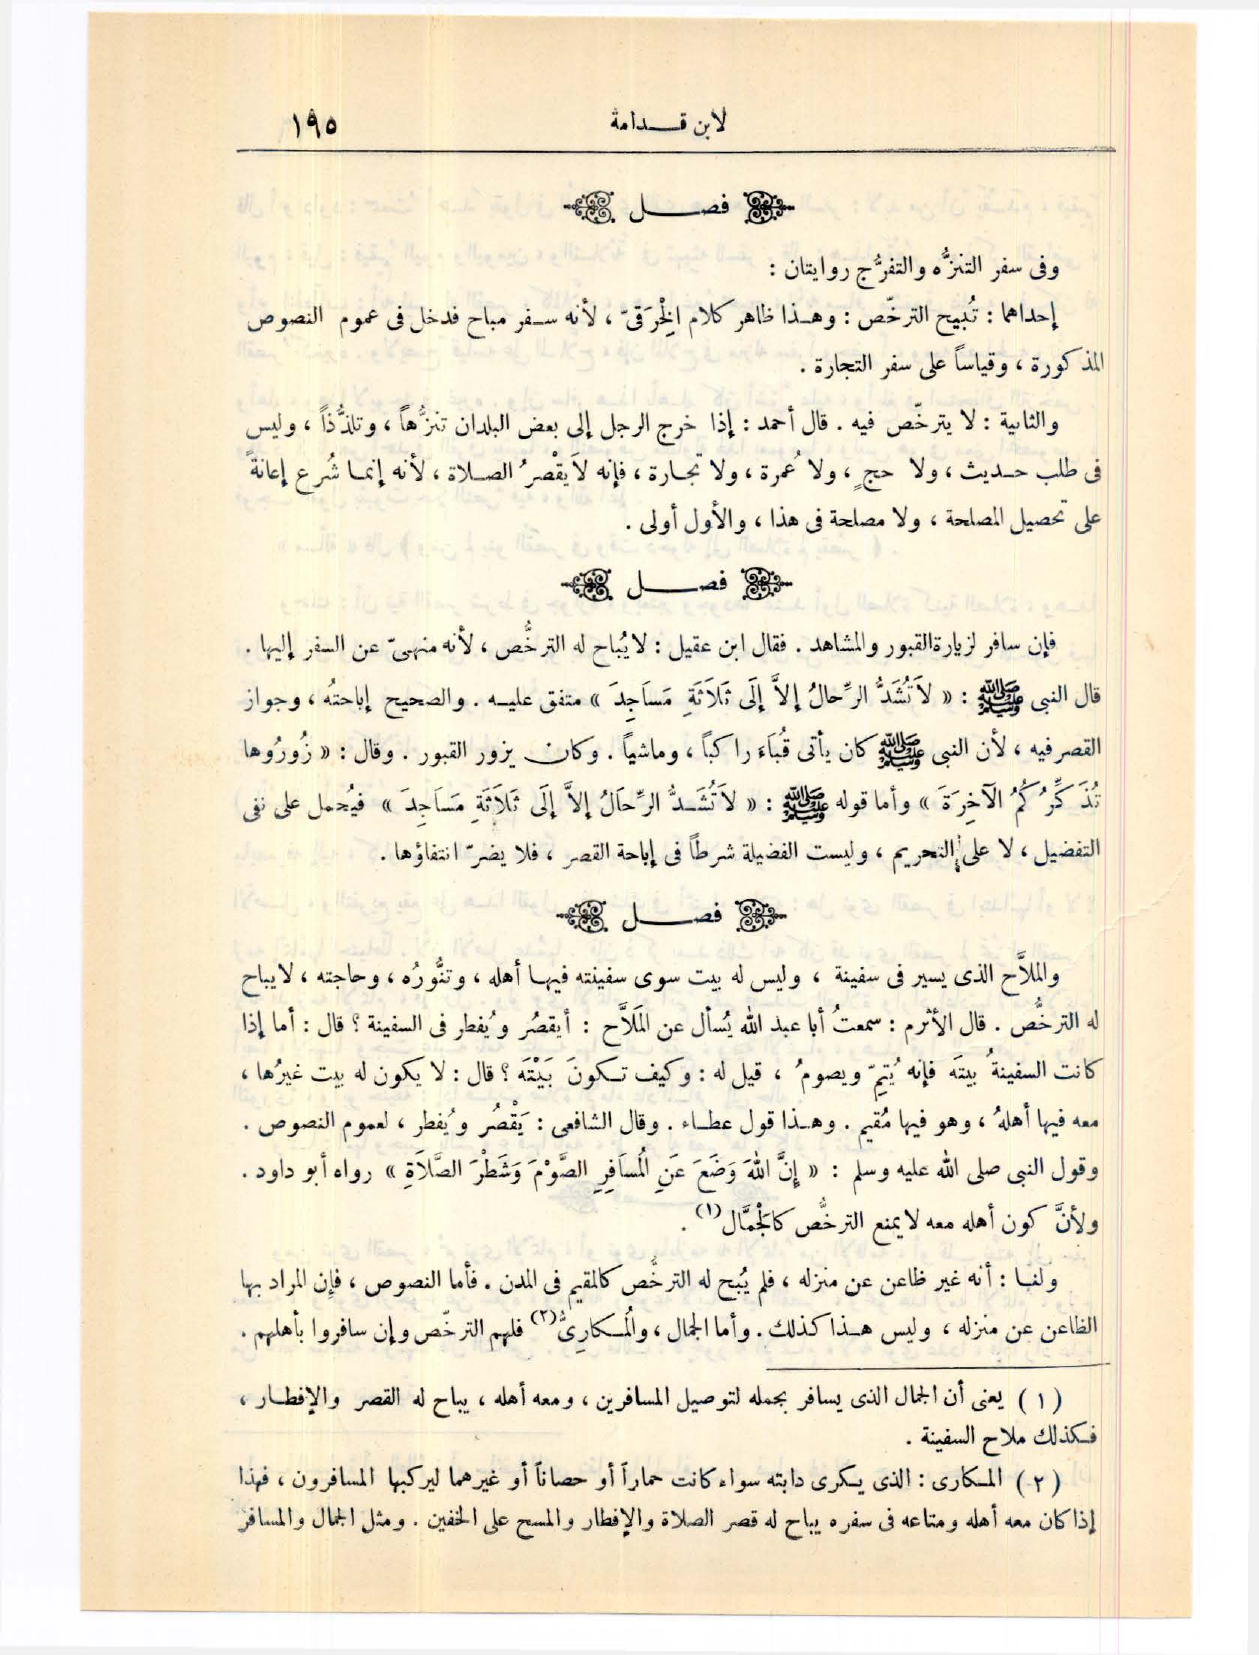 لابن قـــدامة
١٩٥
فصـــل
وفى سفر التنزُّه والتفرُّج روايتان :
إحداهما : تُبيح الترخّص : وهـذا ظاهر كلام الِخْرَقىّ ، لأنه سـفر مباح فدخل فى عموم النصوص
المذكورة ، وقياساً على سفر التجارة .
والثانية : لا يترخّص فيه . قال أحمد : إذا خرج الرجل إلى بعض البلدان تنزُّهاً ، وتلذُّذاً ، وليس
فى طلب حـديث ، ولا حجٍ ، ولا عُمرة ، ولا تجارة ، فإنه لاَ يقْصرُ الصـلاة ، لأنه إنمـا شُرع إعانةً
على تحصيل المصلحة ، ولا مصلحة فى هذا ، والأول أولى .
فصـــل
فإن سافر لزيارة القبور والمشاهد . فقال ابن عقيل : لا يُباح له الترخُّص ، لأنه منهىّ عن السفر إليها .
قال النبى ﷺ : « لاَ تُشَدُّ الرِّحالُ إلاَّ إلَى ثَلَاثَةِ مَسَاجِدَ » متفق عليـه . والصحيح إباحتهُ ، وجواز
القصر فيه ، لأن النبى ﷺ كان يأتى قُبَاءَ راكباً ، وماشياً . وكان يزور القبور . وقال : « زُورُوها
تُذَكِّرُكُمُ الآخِرَةَ » وأما قوله ﷺ : « لاَ تُشَـدُّ الرِّحَالُ إلاَّ إلَى ثَلَاثَةِ مَسَاجِدَ » فيُحمل على نفى
التفضيل ، لا على التحريم ، وليست الفضيلة شرطاً فى إباحة القصر ، فلا يضرّ انتفاؤها .
فصـــل
والملاَّح الذى يسير فى سفينة ، وليس له بيت سوى سفينته فيهـا أهله ، وتنُّورُه ، وحاجته ، لا يباح
له الترخُّص . قال الأثرم : سمعتُ أبا عبد الله يُسأل عن المَلاَّح : أيقصُر ويُفطر فى السفينة ؟ قال : أما إذا
كانت السفينةُ بيتَه فإنه يُتِمّ ويصومُ ، قيل له : وكيف تـكونَ بَيْتَه ؟ قال : لا يكون له بيت غيرُها ،
معه فيها أهلهُ ، وهو فيها مُقيم . وهـذا قول عطـاء . وقال الشافعى : يَقْصُر ويُفطر ، لعموم النصوص .
وقول النبى صلى الله عليه وسلم : « إنَّ اللهَ وَضَعَ عَنِ الُمسَافِرِ الصَّوْمَ وَشَطْرَ الصَّلَاةِ » رواه أبو داود .
ولأنَّ كون أهله معه لا يمنع الترخُّص كالَجْمَّال (١) .
ولنـا : أنه غير ظاعن عن منزله ، فلم يُبح له الترخُّص كالمقيم فى المدن . فأما النصوص ، فإن المراد بها
الظاعن عن منزله ، وليس هـذا كذلك . وأما الجمال ، والُمـكارِىُّ (٢) فلهم الترخّص وإن سافروا بأهلهم .
(١) يعنى أن الجمال الذى يسافر بجمله لتوصيل المسافرين ، ومعه أهله ، يباح له القصر والإفطـار ،
فـكذلك ملاح السفينة .
(٢) المـكارى : الذى يـكرى دابته سواء كانت حماراً أو حصاناً أو غيرهما ليركبها المسافرون ، فهذا
إذا كان معه أهله ومتاعه فى سفره يباح له قصر الصلاة والإفطار والمسح على الخفين . ومثل الجمال والمسافر